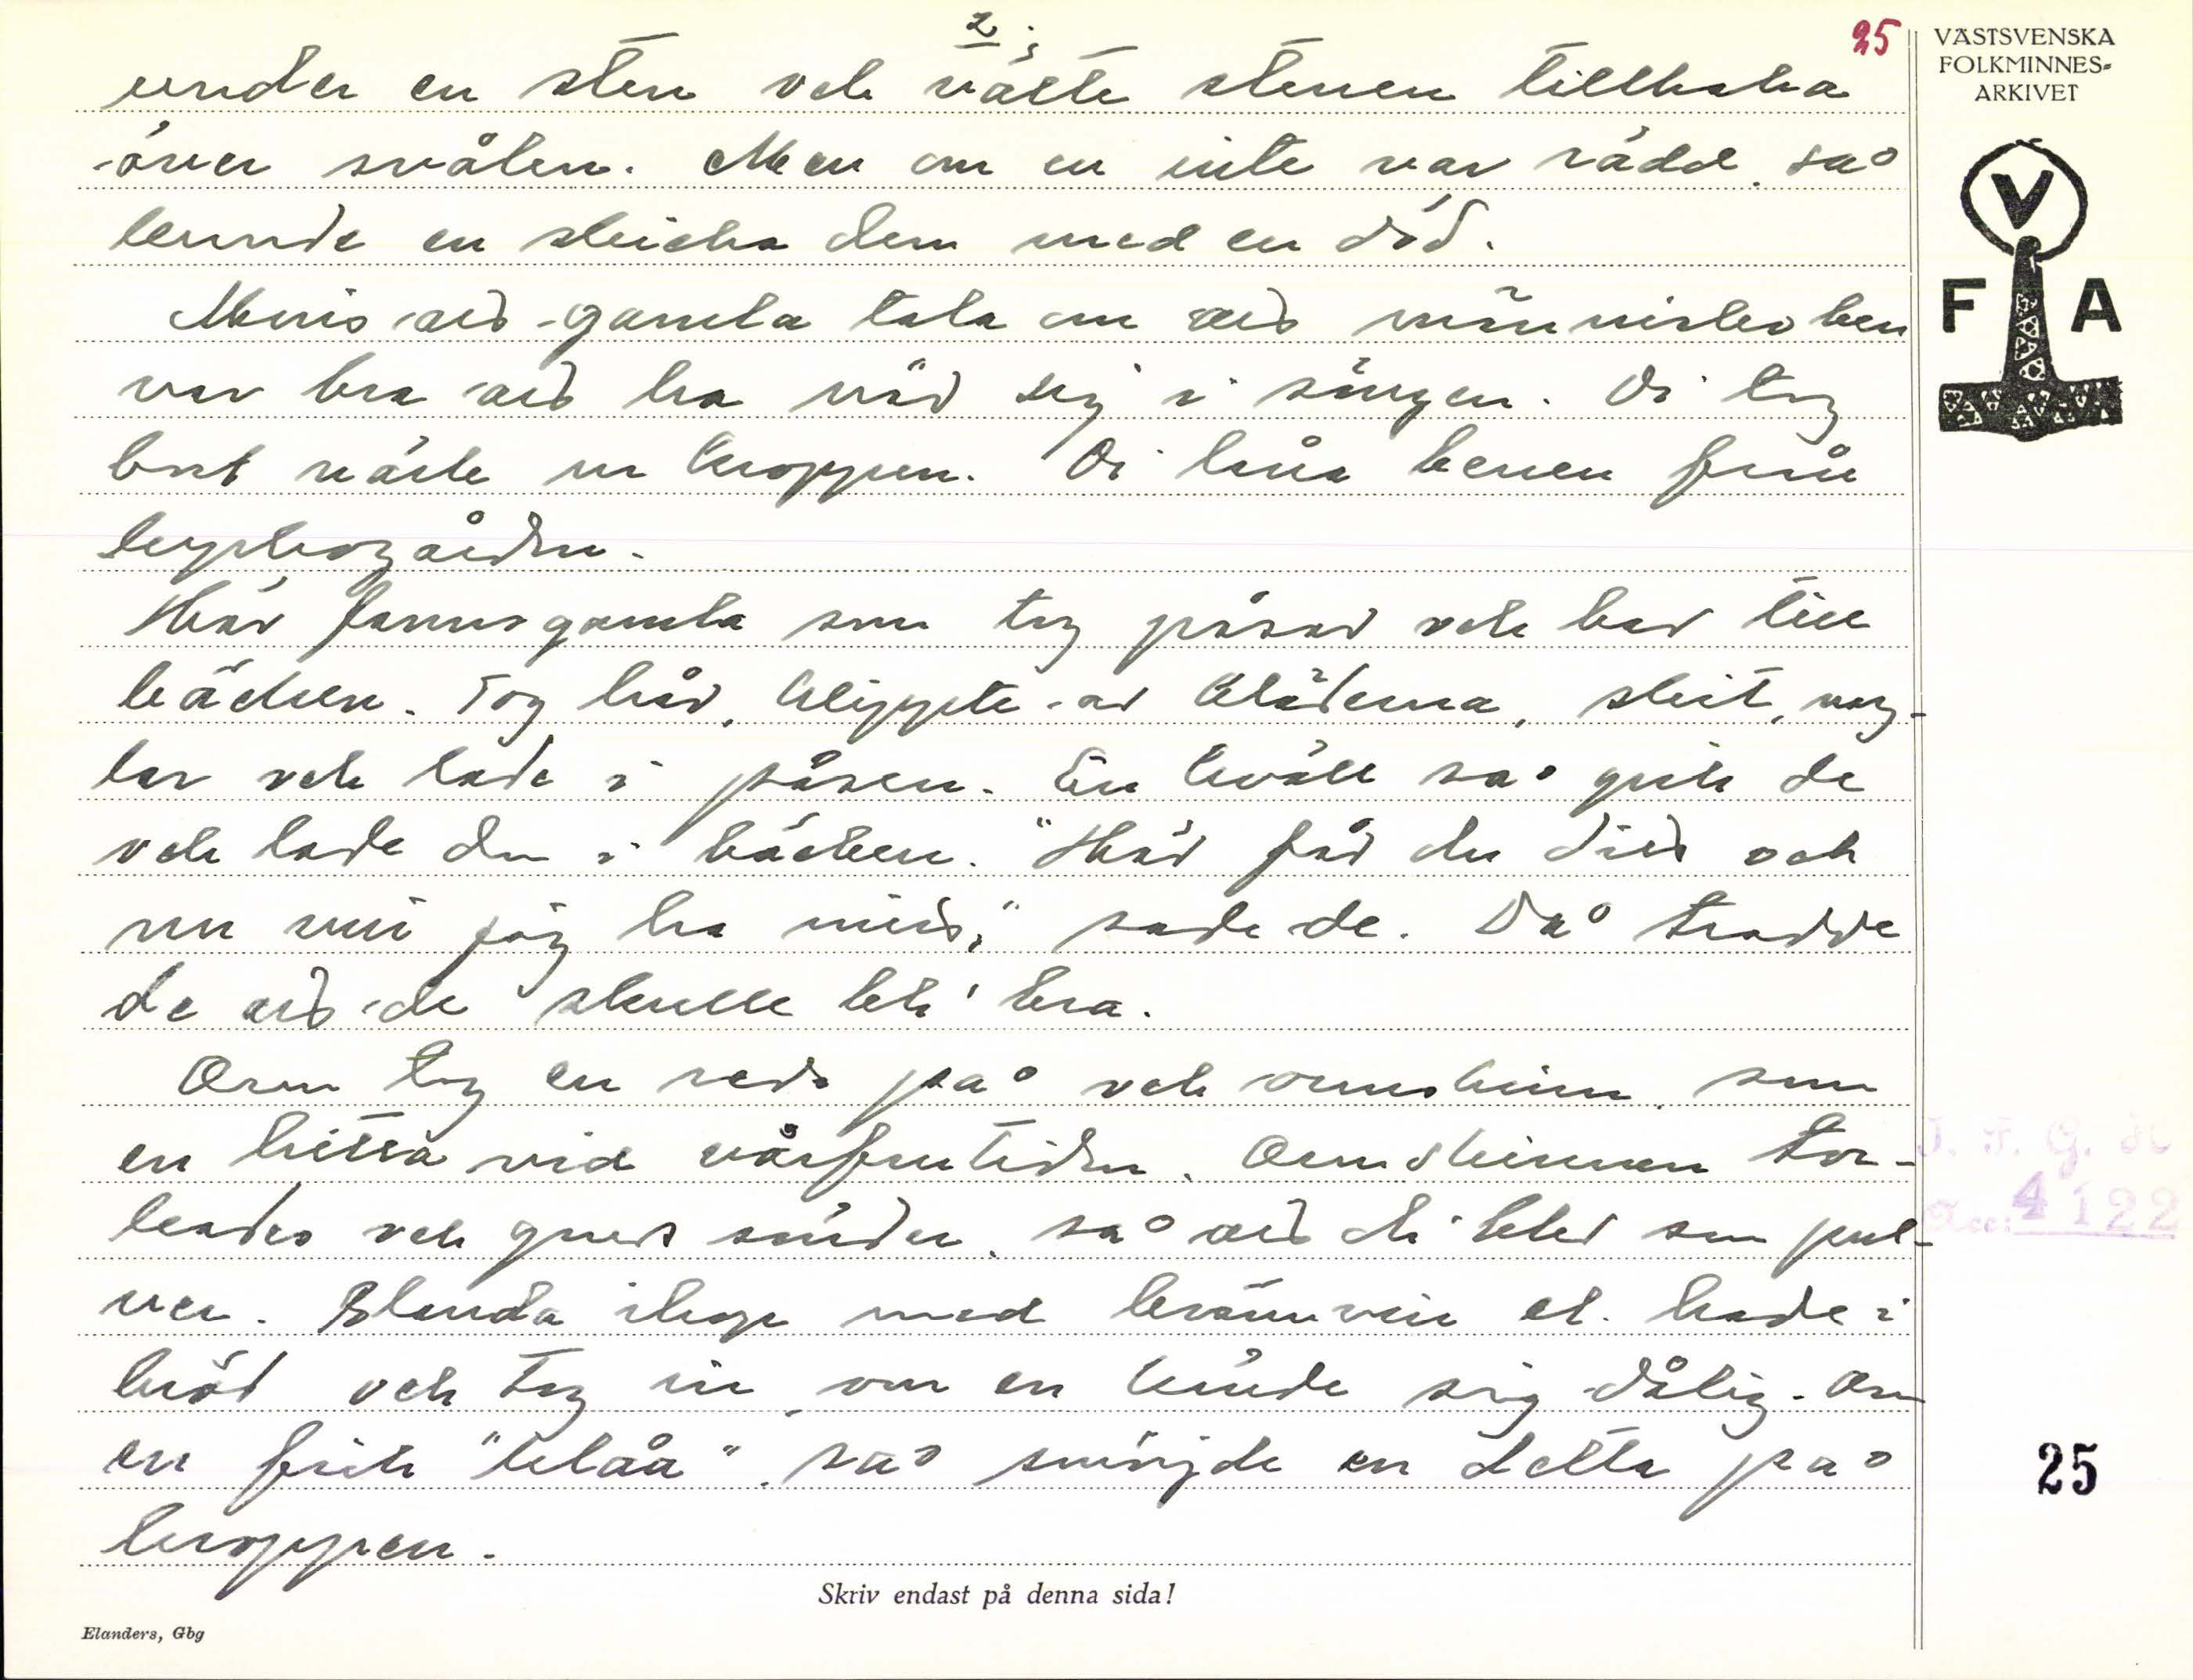 2.
25
under en sten och välte stenen tillbaka
över svålen. Men om en inte var rädd så
kunde en stricka dem med en död.
Minns att gamla tala om att människoben
var bra att ha när sig i sängen. Di tog
bort värk ur kroppen. Di låna benen från
kyrkogården.
Här fanns gamla som tog påsar och bar till
bäcken. Tog hår, klippte av kläderna, skit, nag-
lar och lade i påsen. En kväll så gick de
och lade den i bäcken. "Här får du ditt och
nu vill jag ha mitt," sade de. Då trodde
de att de skulle bli bra.
Orm tog en reda på och ormskinn som
en hitta vid vårfrutiden. Ormskinnen tor-
kades och gneds sönder, så att di blev som pul-
ver. Blanda ihop med brännvin el. hade i
bröd och tog in om en kände sig dålig. Om
en fick "blåå", så smörjde en detta på
kroppen.
Skriv endast på denna sida!
Elanders, Gbg
VÄSTSVENSKA
FOLKMINNES-
ARKIVET
V
F A
Acc: 4122
25